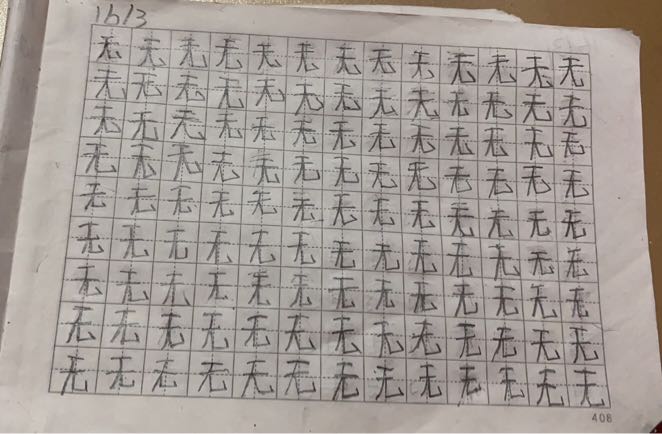 16/3
无无无无无无无无无无无无无
无无无无无无无无无无无无无
无无无无无无无无无无无无无
无无无无无无无无无无无无无
无无无无无无无无无无无无无
无无无无无无无无无无无无无
无无无无无无无无无无无无无
无无无无无无无无无无无无无
无无无无无无无无无无无无无
408